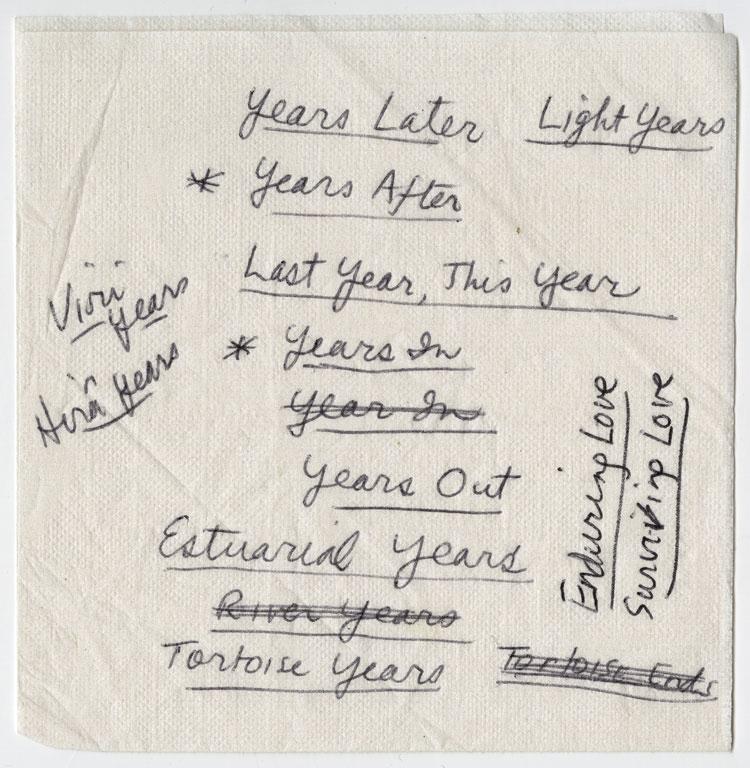 Years Later
Light Years
* Years After
Last Year, This Year
Years In
Year In
Years Out
Estuarial Years
River Years
Tortoise Years
Tortoise
Years
Years
Enduring Love
Surviving Love